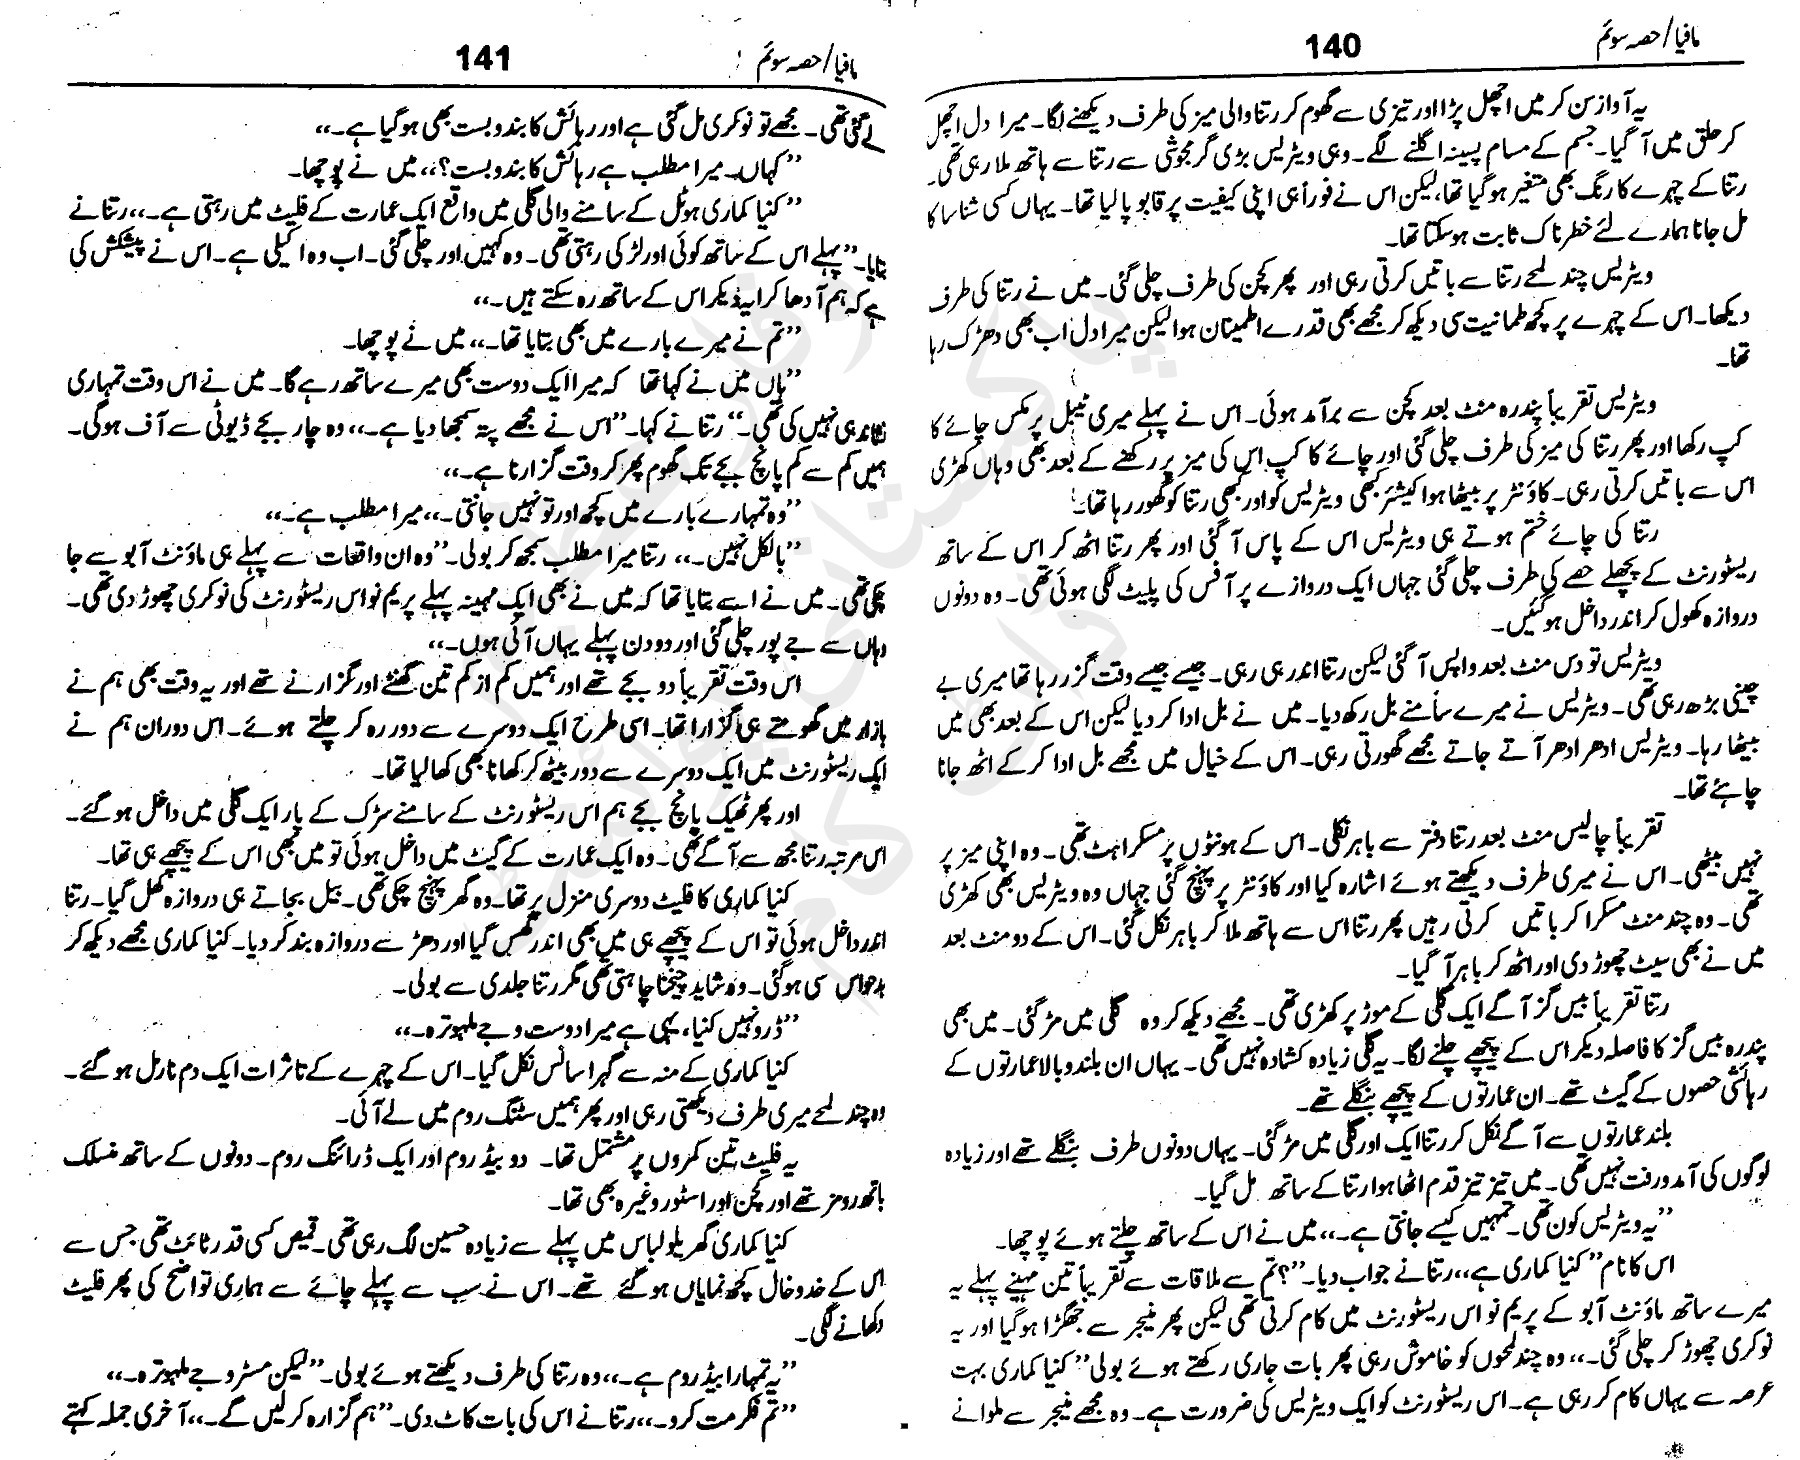 مافیا/حصہ سوئم
140
یہ آواز سن کر میں اچھل پڑا اور تیزی سے گھوم کر رتنا والی میز کی طرف دیکھنے لگا۔ میرا دل اچھل
کر حلق میں آ گیا۔ جسم کے مسام پسینہ اگلنے لگے۔ وہی ویٹریس بڑی گرمجوشی سے رتنا سے ہاتھ ملا رہی تھی۔
رتنا کے چہرے کا رنگ بھی متغیر ہو گیا تھا، لیکن اس نے فوراً ہی اپنی کیفیت پر قابو پا لیا تھا۔ یہاں کسی شناسا کا
مل جانا ہمارے لئے خطرناک ثابت ہو سکتا تھا۔
ویٹریس چند لمحے رتنا سے باتیں کرتی رہی اور پھر کچن کی طرف چلی گئی۔ میں نے رتنا کی طرف
دیکھا۔ اس کے چہرے پر کچھ طمانیت سی دیکھ کر مجھے بھی قدرے اطمینان ہوا لیکن میرا دل اب بھی دھڑک رہا
تھا۔
ویٹریس تقریباً پندرہ منٹ بعد کچن سے برآمد ہوئی۔ اس نے پہلے میری ٹیبل پر مکس چائے کا
کپ رکھا اور پھر رتنا کی میز کی طرف چلی گئی اور چائے کا کپ اس کی میز پر رکھنے کے بعد بھی وہاں کھڑی
اس سے باتیں کرتی رہی۔ کاؤنٹر پر بیٹھا ہوا کیشئر کبھی ویٹریس کو اور کبھی رتنا کو گھور رہا تھا۔
رتنا کی چائے ختم ہوتے ہی ویٹریس اس کے پاس آ گئی اور پھر رتنا اٹھ کر اس کے ساتھ
ریسٹورنٹ کے پچھلے حصے کی طرف چلی گئی جہاں ایک دروازے پر آفس کی پلیٹ لگی ہوئی تھی۔ وہ دونوں
دروازہ کھول کر اندر داخل ہو گئیں۔
ویٹریس تو دس منٹ بعد واپس آ گئی لیکن رتنا اندر ہی رہی۔ جیسے جیسے وقت گزر رہا تھا میری بے
چینی بڑھ رہی تھی۔ ویٹریس نے میرے سامنے بل رکھ دیا۔ میں نے بل ادا کر دیا لیکن اس کے بعد بھی میں
بیٹھا رہا۔ ویٹریس ادھر ادھر آتے جاتے مجھے گھورتی رہی۔ اس کے خیال میں مجھے بل ادا کر کے اٹھ جانا
چاہئے تھا۔
تقریباً چالیس منٹ بعد رتنا دفتر سے باہر نکلی۔ اس کے ہونٹوں پر مسکراہٹ تھی۔ وہ اپنی میز پر
نہیں بیٹھی۔ اس نے میری طرف دیکھتے ہوئے اشارہ کیا اور کاؤنٹر پر پہنچ گئی جہاں وہ ویٹریس بھی کھڑی
تھی۔ وہ چند منٹ مسکرا کر باتیں کرتی رہیں پھر رتنا اس سے ہاتھ ملا کر باہر نکل گئی۔ اس کے دو منٹ بعد
میں نے بھی سیٹ چھوڑ دی اور اٹھ کر باہر آ گیا۔
رتنا تقریباً بیس گز آگے ایک گلی کے موڑ پر کھڑی تھی۔ مجھے دیکھ کر وہ گلی میں مڑ گئی۔ میں بھی
پندرہ بیس گز کا فاصلہ دیکر اس کے پیچھے چلنے لگا۔ یہ گلی زیادہ کشادہ نہیں تھی۔ یہاں ان بلند و بالا عمارتوں کے
رہائشی حصوں کے گیٹ تھے۔ ان عمارتوں کے پیچھے بنگلے تھے۔
بلند عمارتوں سے آگے نکل کر رتنا ایک اور گلی میں مڑ گئی۔ یہاں دونوں طرف بنگلے تھے اور زیادہ
لوگوں کی آمد و رفت نہیں تھی۔ میں تیز تیز قدم اٹھاتا ہوا رتنا کے ساتھ مل گیا۔
”یہ ویٹریس کون تھی۔ تمہیں کیسے جانتی ہے۔،، میں نے اس کے ساتھ چلتے ہوئے پوچھا۔
اس کا نام ”کنیا کماری ہے،، رتنا نے جواب دیا۔ ”؟ تم سے ملاقات سے تقریباً تین مہینے پہلے یہ
میرے ساتھ ماؤنٹ آبو کے پریم نواس ریسٹورنٹ میں کام کرتی تھی لیکن پھر منیجر سے جھگڑا ہو گیا اور یہ
نوکری چھوڑ کر چلی گئی۔،، وہ چند لمحوں کو خاموش رہی پھر بات جاری رکھتے ہوئے بولی ”کنیا کماری بہت
عرصہ سے یہاں کام کر رہی ہے۔ اس ریسٹورنٹ کو ایک ویٹریس کی ضرورت ہے۔ وہ مجھے منیجر سے ملوانے
مافیا/حصہ سوئم
141
لے گئی تھی۔ مجھے تو نوکری مل گئی ہے اور رہائش کا بندوبست بھی ہو گیا ہے۔،،
”کہاں۔ میرا مطلب ہے رہائش کا بندوبست؟،، میں نے پوچھا۔
”کنیا کماری ہوٹل کے سامنے والی گلی میں واقع ایک عمارت کے فلیٹ میں رہتی ہے۔،، رتنا نے
بتایا۔ ”پہلے اس کے ساتھ کوئی اور لڑکی رہتی تھی۔ وہ کہیں اور چلی گئی۔ اب وہ اکیلی ہے۔ اس نے پیشکش کی
ہے کہ ہم آدھا کرایہ دیکر اس کے ساتھ رہ سکتے ہیں۔،،
”تم نے میرے بارے میں بھی بتایا تھا۔،، میں نے پوچھا۔
”ہاں میں نے کہا تھا کہ میرا ایک دوست بھی میرے ساتھ رہے گا۔ میں نے اس وقت تمہاری
نشاندہی نہیں کی تھی۔“ رتنا نے کہا۔ ”اس نے مجھے پتہ سمجھا دیا ہے۔،، وہ چار بجے ڈیوٹی سے آف ہو گی۔
ہمیں کم سے کم پانچ بجے تک گھوم پھر کر وقت گزارنا ہے۔،،
”وہ تمہارے بارے میں کچھ اور تو نہیں جانتی۔،، میرا مطلب ہے۔،،
”بالکل نہیں۔،، رتنا میرا مطلب سمجھ کر بولی۔ ”وہ ان واقعات سے پہلے ہی ماؤنٹ آبو سے جا
چکی تھی۔ میں نے اسے بتایا تھا کہ میں نے بھی ایک مہینہ پہلے پریم نواس ریسٹورنٹ کی نوکری چھوڑ دی تھی۔
وہاں سے جے پور چلی گئی اور دو دن پہلے یہاں آئی ہوں۔،،
اس وقت تقریباً دو بجے تھے اور ہمیں کم از کم تین گھنٹے اور گزارنے تھے اور یہ وقت بھی ہم نے
بازار میں گھومتے ہی گزارا تھا۔ اسی طرح ایک دوسرے سے دور رہ کر چلتے ہوئے۔ اس دوران ہم نے
ایک ریسٹورنٹ میں ایک دوسرے سے دور بیٹھ کر کھانا بھی کھا لیا تھا۔
اور پھر ٹھیک پانچ بجے ہم اس ریسٹورنٹ کے سامنے سڑک کے پار ایک گلی میں داخل ہو گئے۔
اس مرتبہ رتنا مجھ سے آگے تھی۔ وہ ایک عمارت کے گیٹ میں داخل ہوئی تو میں بھی اس کے پیچھے ہی تھا۔
کنیا کماری کا فلیٹ دوسری منزل پر تھا۔ وہ گھر پہنچ چکی تھی۔ بیل بجاتے ہی دروازہ کھل گیا۔ رتنا
اندر داخل ہوئی تو اس کے پیچھے ہی میں بھی اندر گھس گیا اور دھڑ سے دروازہ بند کر دیا۔ کنیا کماری مجھے دیکھ کر
بدحواس سی ہو گئی۔ وہ شاید چیخنا چاہتی تھی مگر رتنا جلدی سے بولی۔
”ڈرو نہیں کنیا، یہی ہے میرا دوست وجے ملہوترہ۔،،
کنیا کماری کے منہ سے گہرا سانس نکل گیا۔ اس کے چہرے کے تاثرات ایک دم نارمل ہو گئے۔
وہ چند لمحے میری طرف دیکھتی رہی اور پھر ہمیں سٹنگ روم میں لے آئی۔
یہ فلیٹ تین کمروں پر مشتمل تھا۔ دو بیڈ روم اور ایک ڈرائنگ روم۔ دونوں کے ساتھ منسلک
باتھ رومز تھے اور کچن اور اسٹور وغیرہ بھی تھا۔
کنیا کماری گھریلو لباس میں پہلے سے زیادہ حسین لگ رہی تھی۔ قمیض کسی قدر ٹائٹ تھی جس سے
اس کے خدوخال کچھ نمایاں ہو گئے تھے۔ اس نے سب سے پہلے چائے سے ہماری تواضع کی پھر فلیٹ
دکھانے لگی۔
”یہ تمہارا بیڈ روم ہے۔،، وہ رتنا کی طرف دیکھتے ہوئے بولی۔ ”لیکن مسٹر وجے ملہوترہ۔،،
”تم فکر مت کرو۔،، رتنا نے اس کی بات کاٹ دی۔ ”ہم گزارہ کر لیں گے۔،، آخری جملہ کہتے